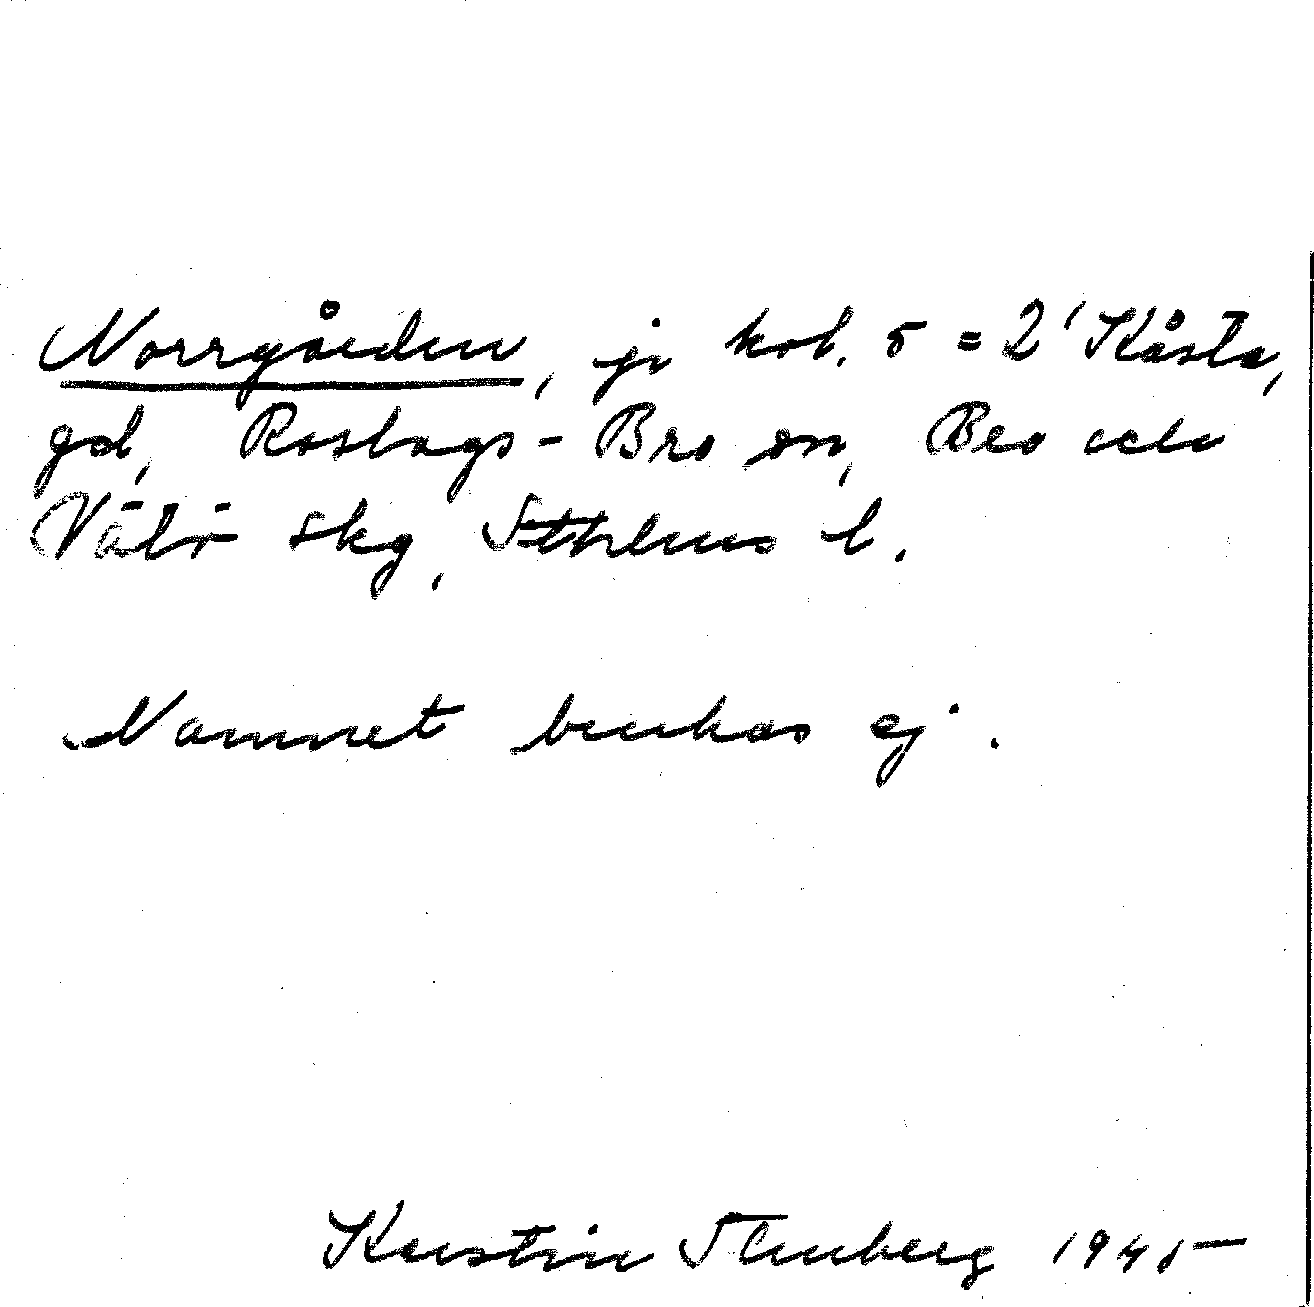 Norrgården, jr kol. 5 = 2' Kåsta,
gd, Roslags-Bro sn, Bro och
Vätö skg, Sthlms l.
Namnet brukas ej.
Kerstin Thunberg 1945